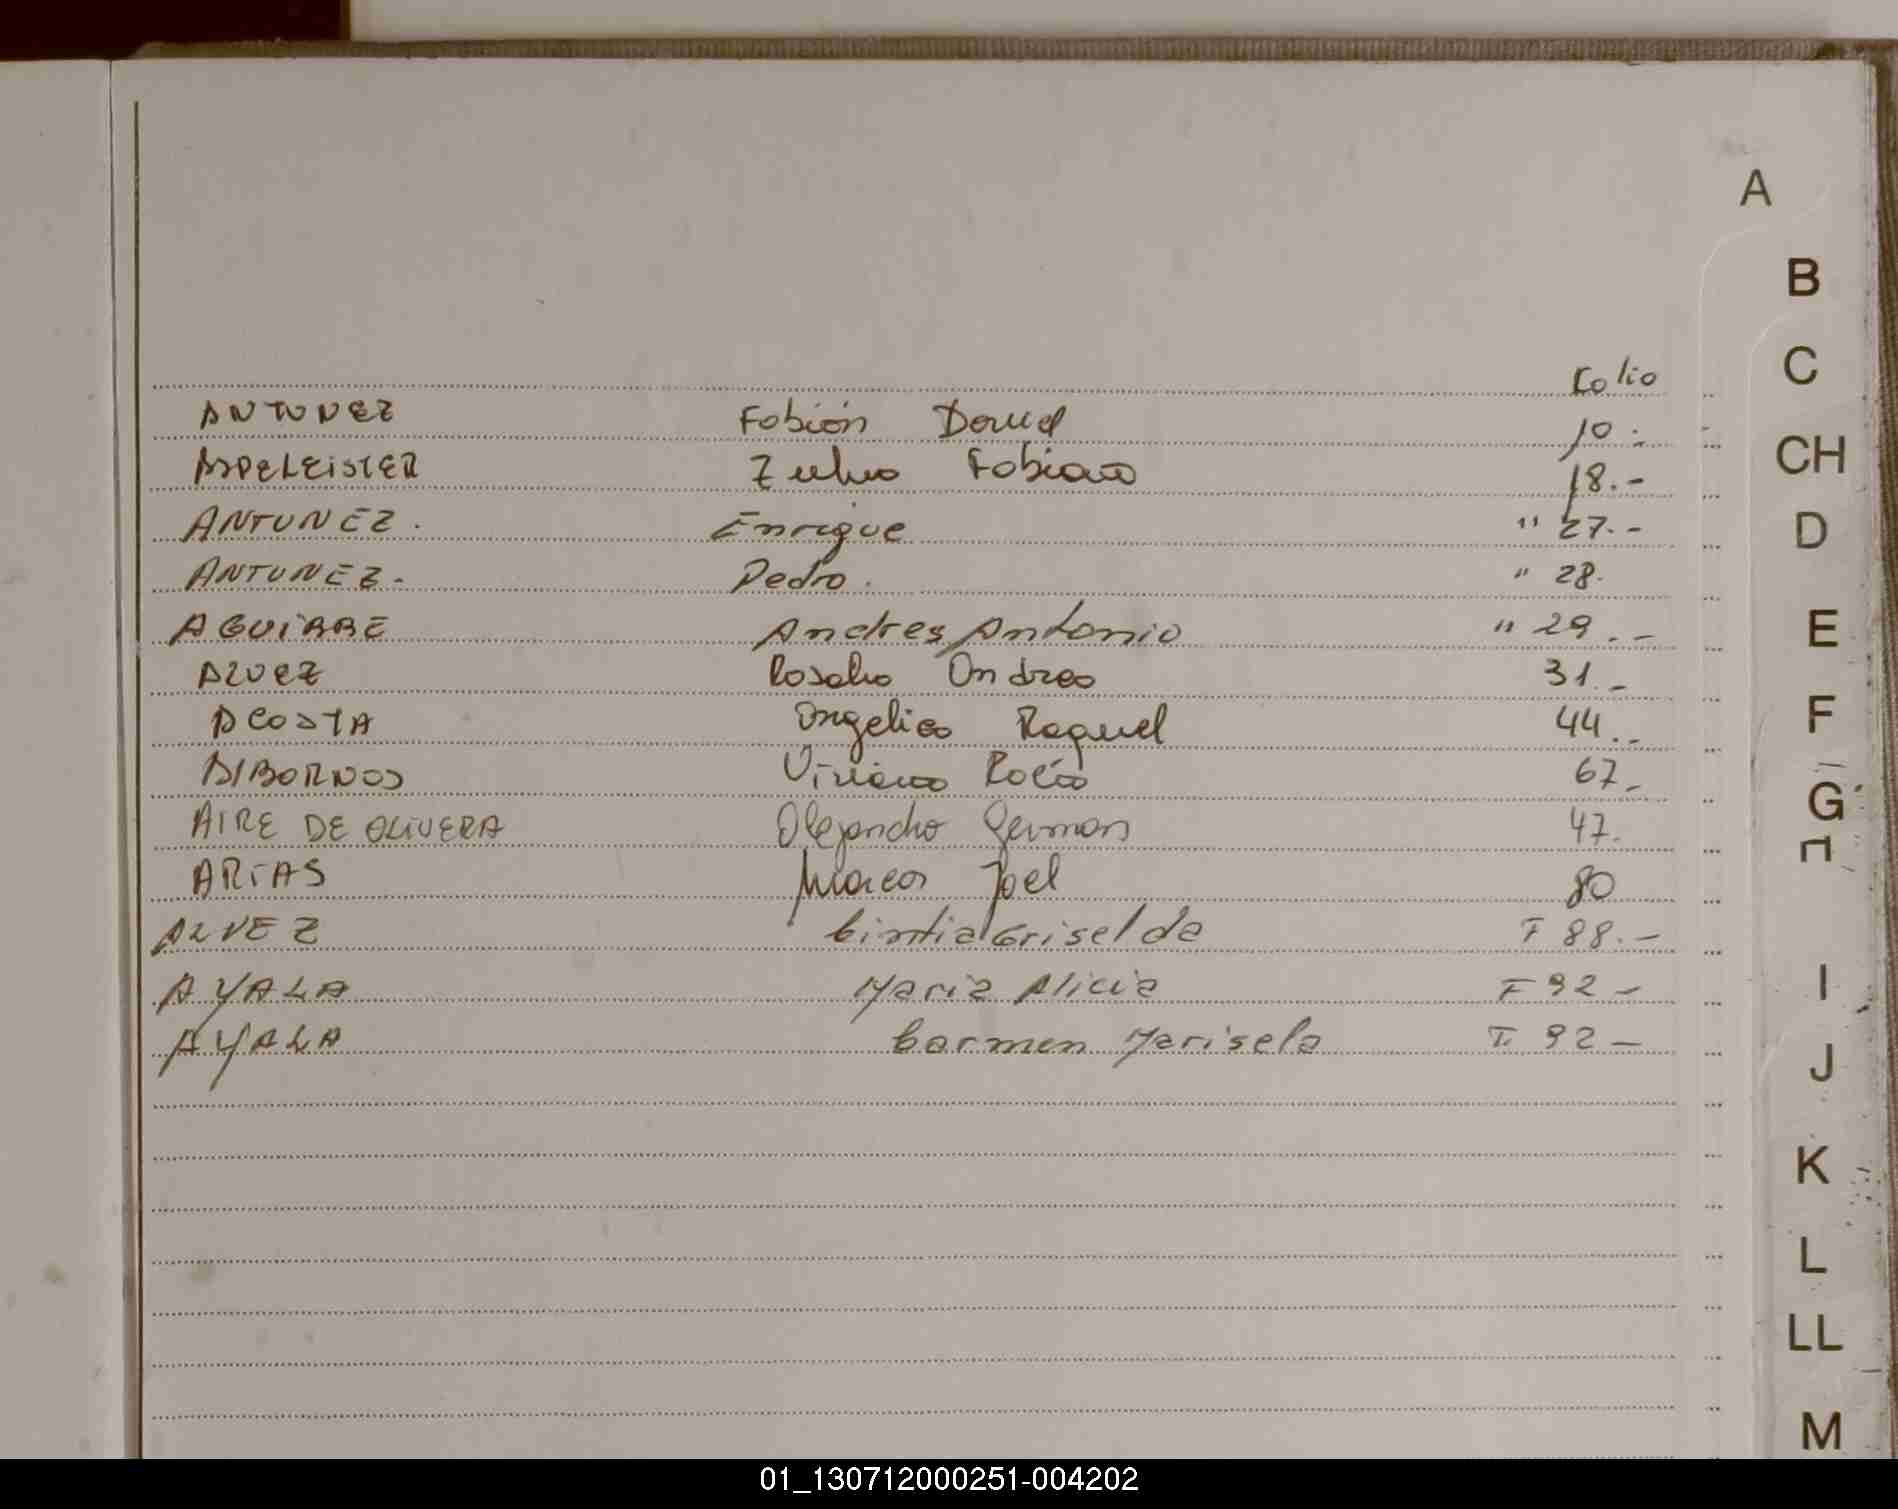 A
B
C
Folio
ANTUNEZ Fabián Daniel 10.-
ASPELEISTER Zulma Fabiana 18.-
CH
ANTUNEZ. Enrique " 27.-
D
ANTUNEZ. Pedro. " 28.
AGUIRRE Andres Antonio " 29.-
E
ALVEZ Rosalia Andrea 31.-
ACOSTA Angelica Raquel 44.-
F
ALBORNOS Viviana Rocío 67.-
G
AIRE DE OLIVERA Alejandro German 47.
ARIAS Marcos Joel 80
ALVEZ Cintia Griselda F 88.-
AYALA Maria Alicia F 92-
I
AYALA Carmen Marisela F 92-
J
K
L
LL
M
01_130712000251-004202